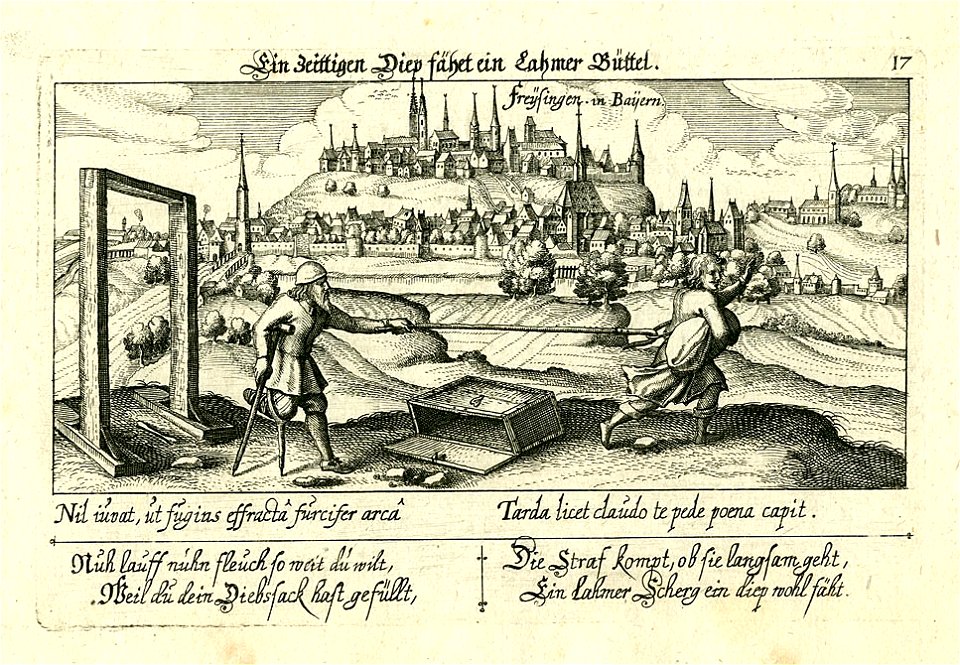 Ein zeittigen Diep fähet ein Lahmer Büttel.
17
Freÿsingen. in Baÿern.
Nil iuvat, ut fugins effractâ furcifer arcâ
Tarda licet claudo te pede poena capit.
Nuh lauff nuhn fleuch so weit du wilt,
Weil du dein Diebssack hast gefüllt,
Die Straf kompt, ob sie langsam geht,
Ein Lahmer Scherg ein diep wohl fäht.